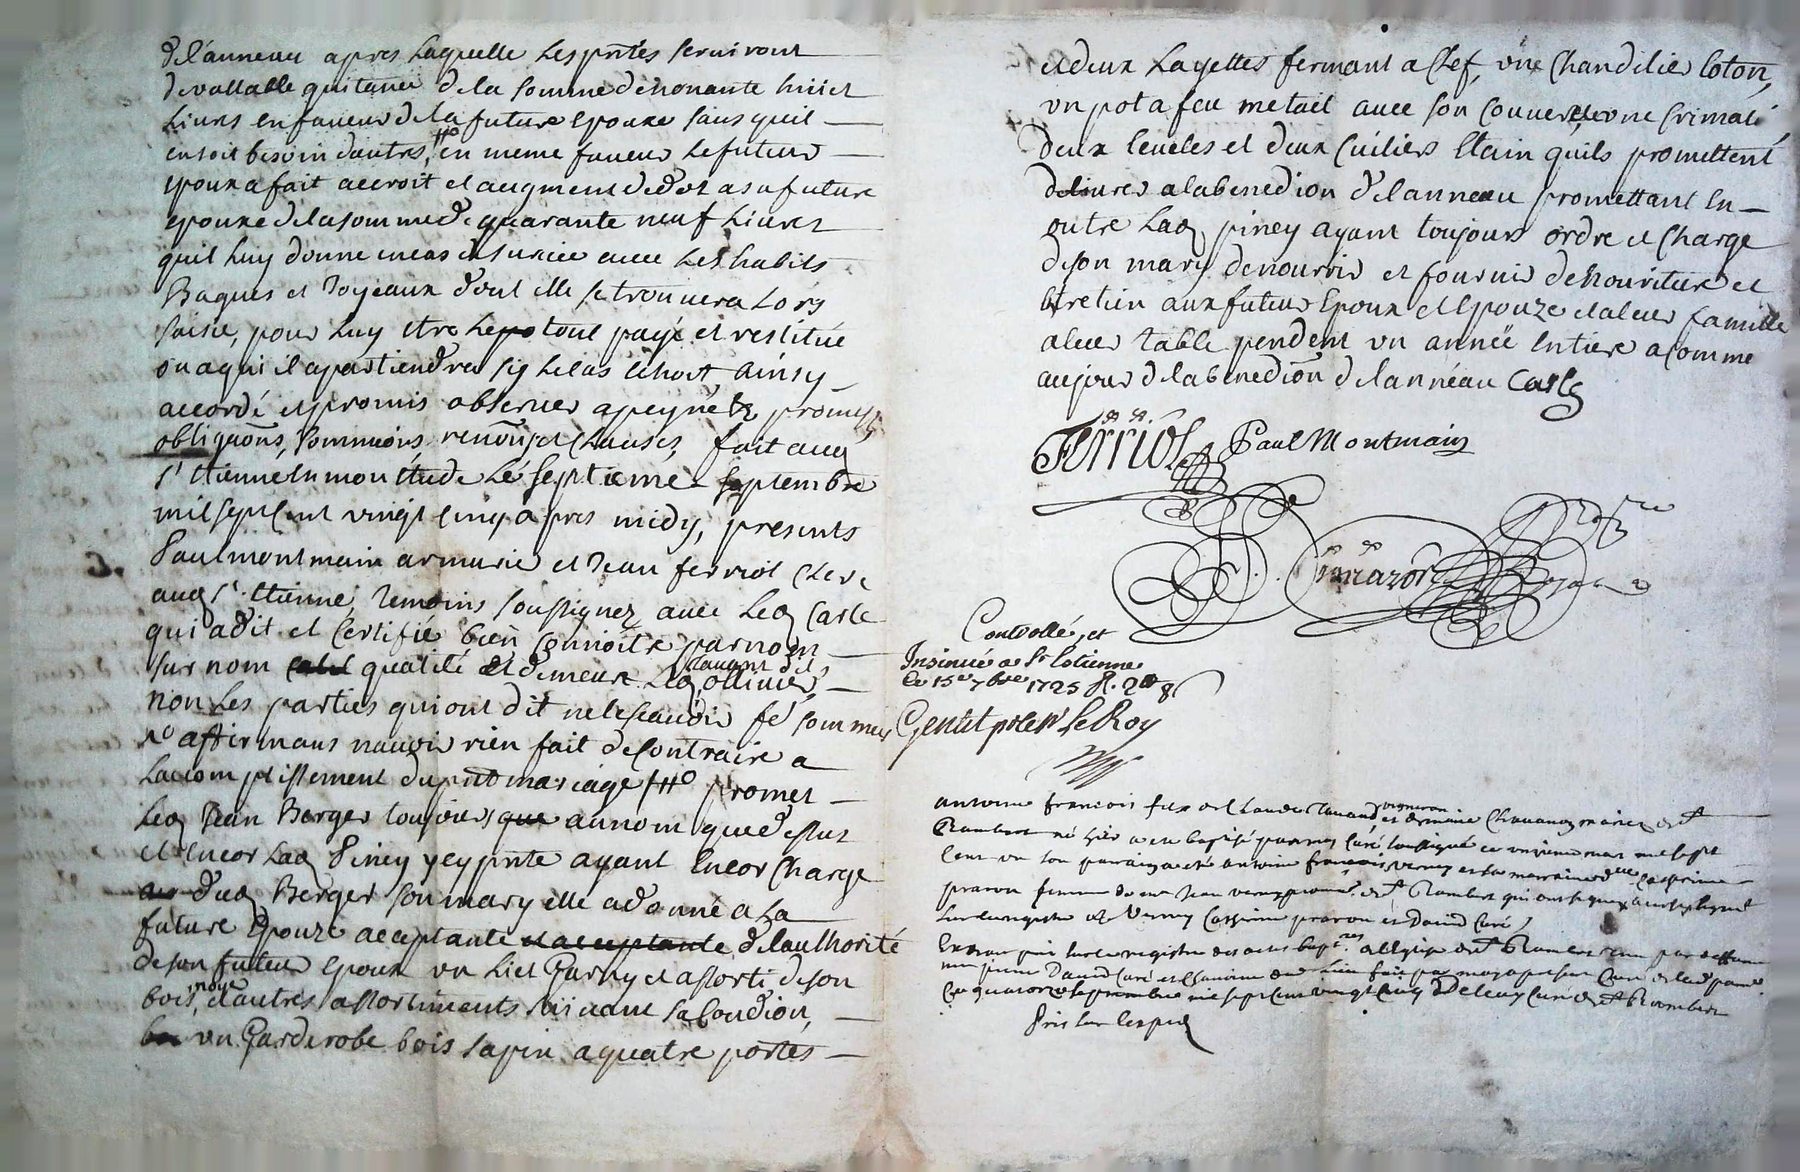 de l'anneau apres laquelle les pntes serviront
de vallable quitance de la somme de nonante huict
livres en faveur de la future epouxe sans quil
en soit besoin dautres, en meme faveur le futeur
epoux a fait accroit et augment de dot a sa future
epouxe de la somme de quarante neuf livres
quil luy donne en cas de survie avec les habits
Bagues et Joyeaux dont elle se trouvera lors
saisie, pour luy etre le tout payé et restitué
ou a qui il apartiendra sy le cas echoit ainsy
accordé et promis observer a peyne & promess
obligaons, soumiõns, renõns et clauses, fait aud
st Etienne en mon etude le septieme septembre
mil sept cent vingt cinq apres midy, presents
Paul montmain armurie et Jean ferriol clerc
aud st. Etienne, temoins soussignez avec led Carle
qui a dit et certifié bien connoitre par nom
sur nom qualité et demeure led ollivier,
non les parties qui ont dit ne le scavoir de ce sommes
affirmans navoir rien fait de contraire a
laccomplissement du pnt mariage promet
led Jean Berger toujours au nom que dessus
et encor lad Piney yey pnte ayant encor charge
dud Berger son mary elle a donné a la
future Epouze acceptante et acceptante de lauthorité
de son futeur epoux un lict garny et assorti de son
bois noye et autres assortiments suivant sa condion,
un garderobe bois sapin a quatre portes
et deux layettes fermant a clef, une chandilier loton,
un pot a feu metail avec son couvercle une crimali
deux eceles et deux cuiliers Etain quils promettent
delivrer a la benedion de lanneau promettant en
outre lad piney ayant toujours ordre et charge
de son mary de nourrir et fournir de nouriture et
entretien aux futeur Epoux et Epouze et a leur famille
a leur table pendent un anneë entiere a comme
au jour de la benedion de lanneau Carle
Ferriol Paul Montmain
Controllé, et
Insinué a St Estienne
le 15e 7bre 1725 R.
Gentil pour le Roy
antoine francois fils de Claude vigneron et de
Rambert né hier a eté baptisé par moy curé soussigné ce unzieme mars mil sept
cent un son parrain a eté antoine françois verny et sa marraine dlle Catherine
praron femme de mr Jean verny
sur le registre Verny Catherine praron et David curé
Extrait pris sur le registre des actes baptres
David curé
ce quatorze septembre mil sept cent vingt cinq